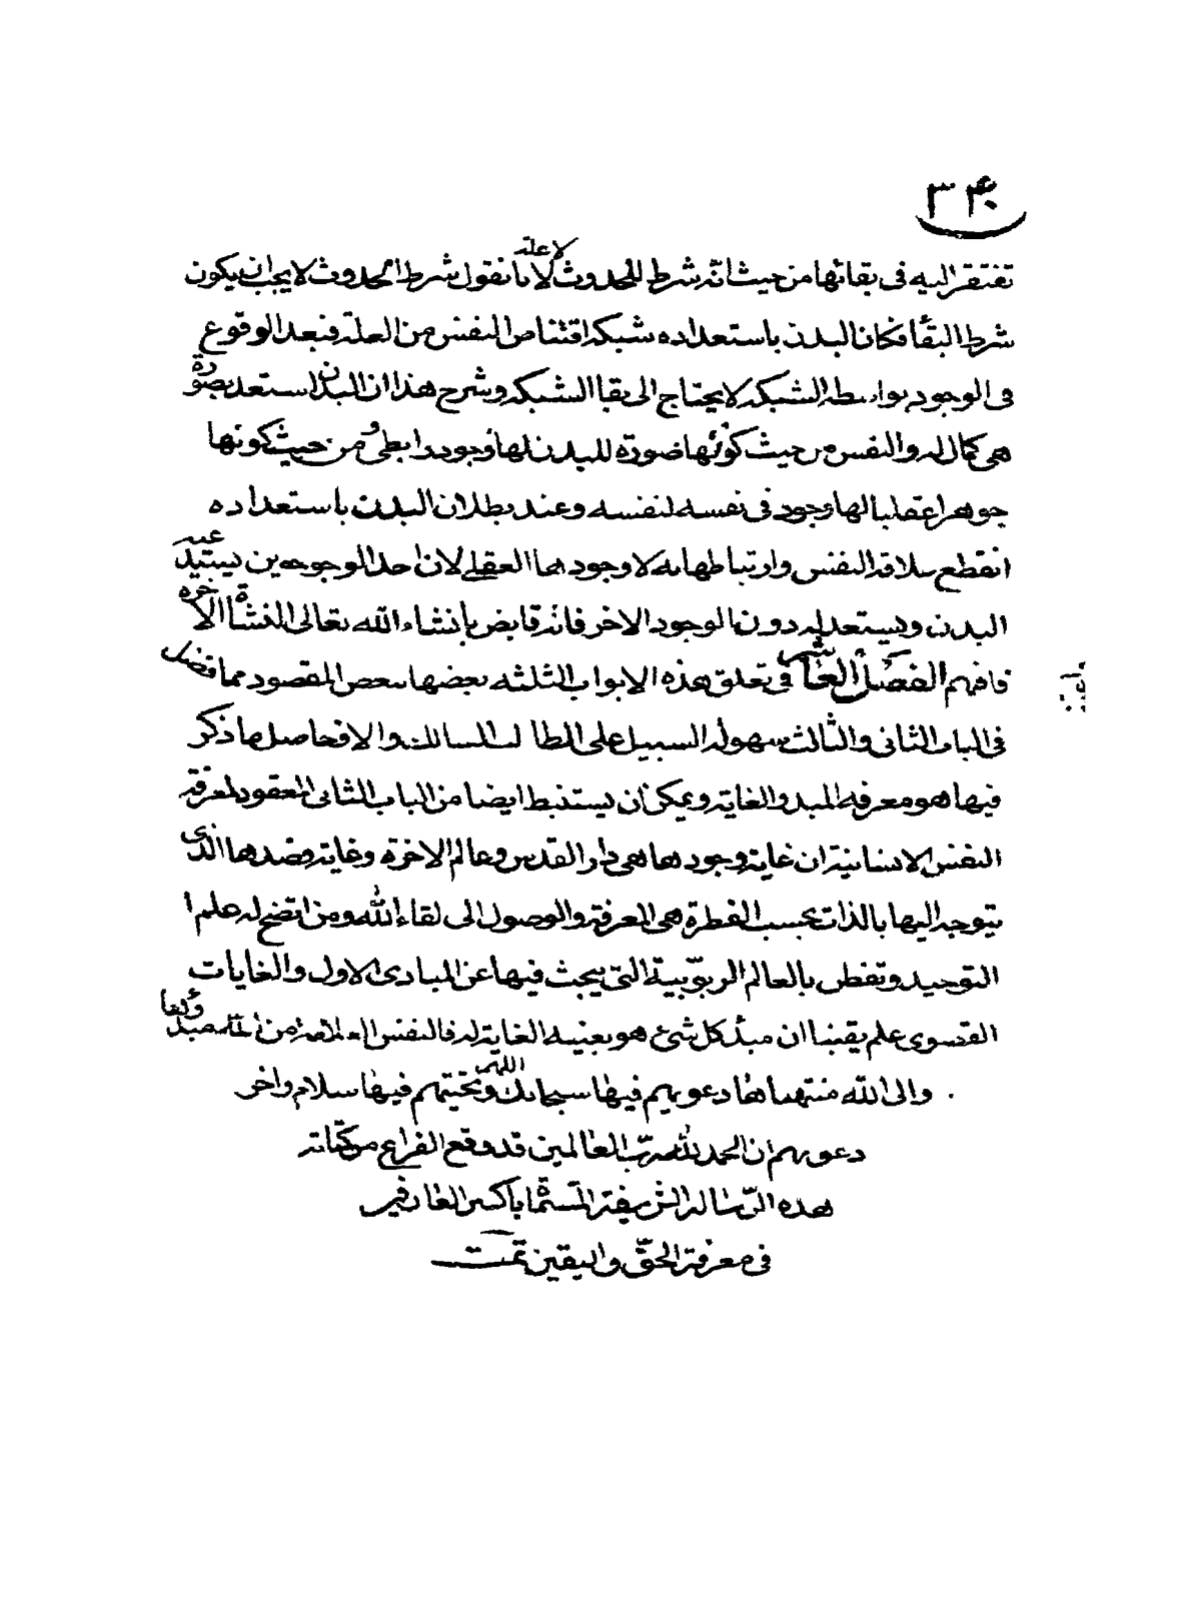 ٣٤٠
تفتقر اليه فى بقائها من حيث انه شرط للحدوث لا علة
لانا نقول شرط الحدوث لا يجب ان يكون
شرط البقأ فكان البدن باستعداده شبكه اقتناص النفس من العلة فبعد الوقوع
فى الوجود بواسطه الشبكه لا يحتاج الى بقا الشبكه وشرح هذا ان البدن استعد بصورة
هى كمال له والنفس من حيث كونها صورة للبدن لها وجود رابطى ومن حيث كونها
جوهرا عقليا لها وجود فى نفسه لنفسه وعند بطلان البدن باستعداده
انقطع علاقه النفس وارتباطها به لا وجودها العقلى لان احد الوجودين يستبد عيه
البدن ويستعد له دون الوجود الاخر فانه فايض بإنشاء الله تعالى النشأة الآخره
فافهم الفصل العاشر فى تعلق هذه الابواب الثلثه بعضها ببعض المقصود مما فضل
فى الباب الثانى والثالث سهوله السبيل على الطالب السالك والا فحاصل ما ذكر
فيها هو معرفه المبدو الغاية ويمكن ان يستنبط ايضا من الباب الثانى المعقود لمعرفة
النفس الانسانية ان غاية وجودها هى دار القدس وعالم الاخرة وغاية قصدها الذى
يتوجه اليها بالذات بحسب الفطرة هى المعرفة والوصول الى لقاء الله ومن اتضح له علم ا
التوحيد وتفطن بالعالم الربوبية التى يبحث فيها عن المبادى الاول والغايات
القصوى علم يقينا ان مبدأ كل شئ هو بعينه الغاية له فالنفس العلامة من الله مبدؤها
والى الله منتهاها دعويهم فيها سبحانك اللهم وتحيتهم فيها سلام واخر
دعويهم ان الحمد لله رب العالمين قد وقع الفراغ من كتابته
هذه الرسالة الشريفة المسماة باكسير العارفين
فى معرفة الحق واليقين تمت